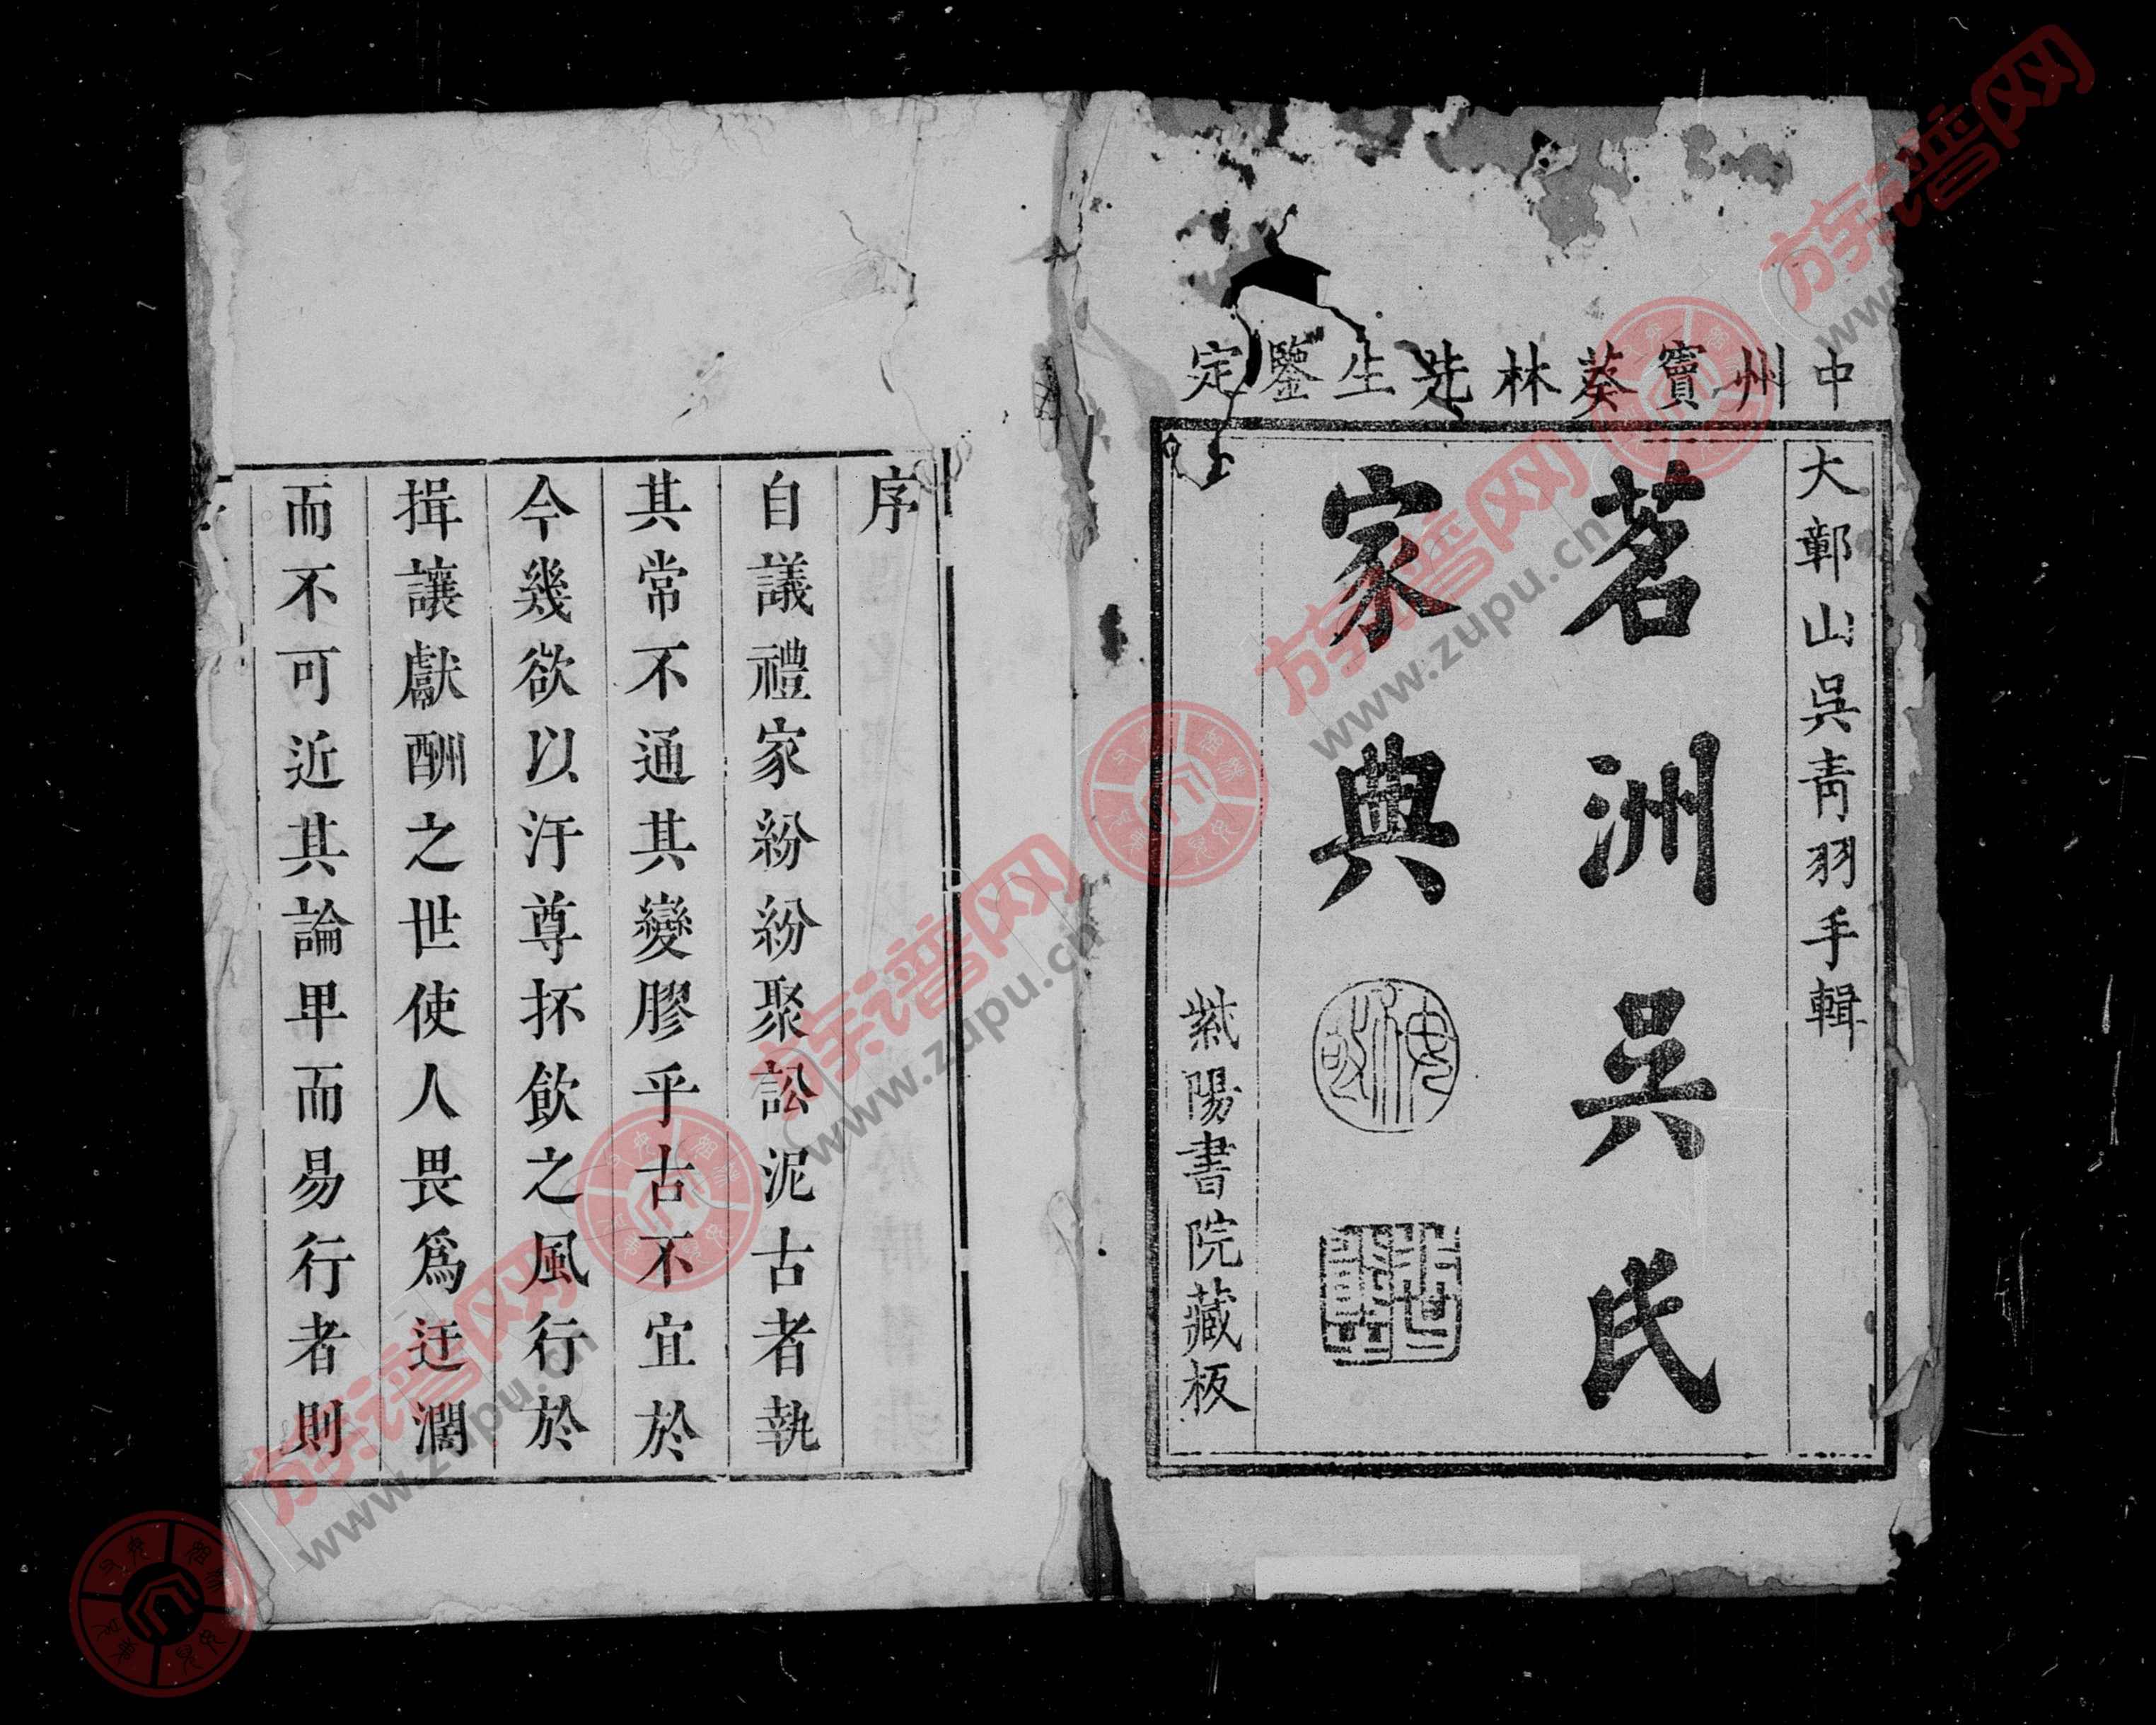 中州竇葵林先生鑒定
大鄣山吳青羽手輯
茗洲吳氏
家典
紫陽書院藏板
序
自議禮家紛紛聚訟泥古者執
其常不通其變膠乎古不宜於
今幾欲以汙尊抔飲之風行於
揖讓獻酬之世使人畏爲迂濶
而不可近其論卑而易行者則
族谱网
www.zupu.cn
族谱网
www.zupu.cn
族谱网
www.zupu.cn
族谱网
www.zupu.cn